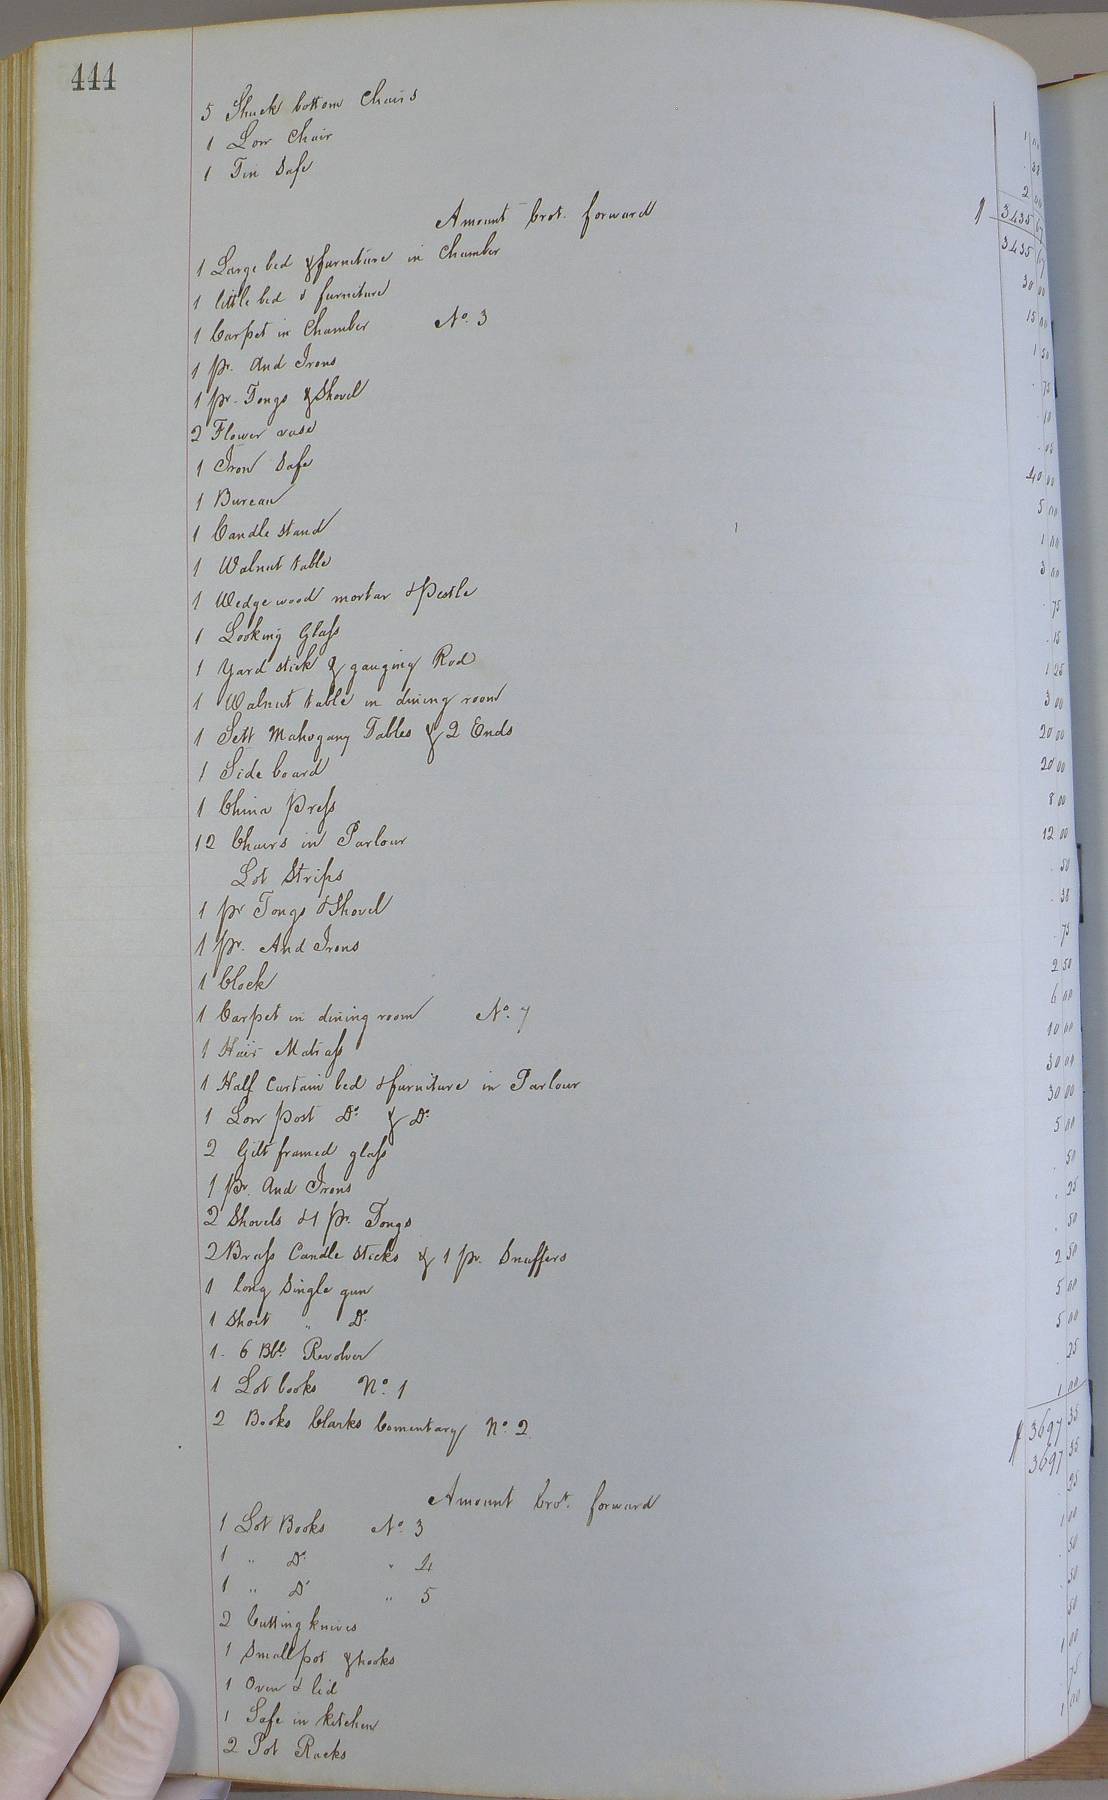 444
5 Shuck bottom Chairs 1 00
1 Low Chair . 38
1 Tin Safe 2 00
$ 3435 67
Amount brot. forward 3435 67
1 Large bed & furniture in Chamber 30 00
1 little bed & furniture 15 00
1 Carpet in Chamber No. 3 1 50
1 pr. And Irons . 75
1 pr. Tongs & Shovel . 10
2 Flower vase . 05
1 Iron Safe 40 00
1 Bureau 5 00
1 Candle stand 1 00
1 Walnut table 3 00
1 Wedgewood mortar & Pestle . 75
1 Looking Glass . 15
1 Yard stick & gauging Rod 1 25
1 Walnut table in dining room 3 00
1 Sett Mahogany Tables & 2 Ends 20 00
1 Side board 20 00
1 China Press 8 00
12 Chairs in Parlour 12 00
Lot Strips . 50
1 pr Tongs & Shovel . 38
1 pr. And Irons . 75
1 Clock 2 50
1 Carpet in dining room No. 7 6 00
1 Hair Matrass 10 00
1 Half Curtain bed & furniture in Parlour 30 00
1 Low post Do. & Do. 30 00
2 Gilt framed glass 5 00
1 Pr. And Irons . 50
2 Shovels & 1 Pr. Tongs . 25
2 Brass Candle Sticks & 1 pr. Snuffers . 50
1 long Single gun 2 50
1 Short " Do. 5 00
1 - 6 Bbl. Revolver 5 00
1 Lot books No. 1 . 25
2 Books Clarks Comentary No. 2 1 00
$ 3697 35
Amount brot. forward 3697 35
1 Lot Books No. 3 . 25
1 " Do. " 4 1 00
1 " Do " 5 . 50
2 Cutting knives . 50
1 Small pot & hooks . 50
1 Oven & lid 1 00
1 Safe in kitchen . 75
2 Pot Racks 1 00